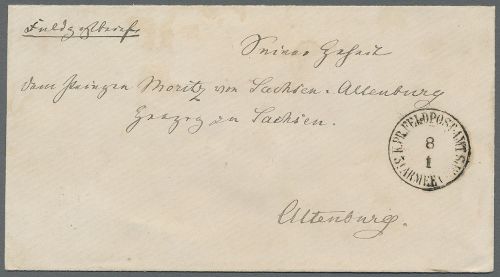 Feldpostbrief.
Seiner Hoheit
dem Prinzen Moritz von Sachsen-Altenburg
Herzog zu Sachsen.
K.PR.FELDPOST-AMT
8
1
ARMEE
Altenburg.